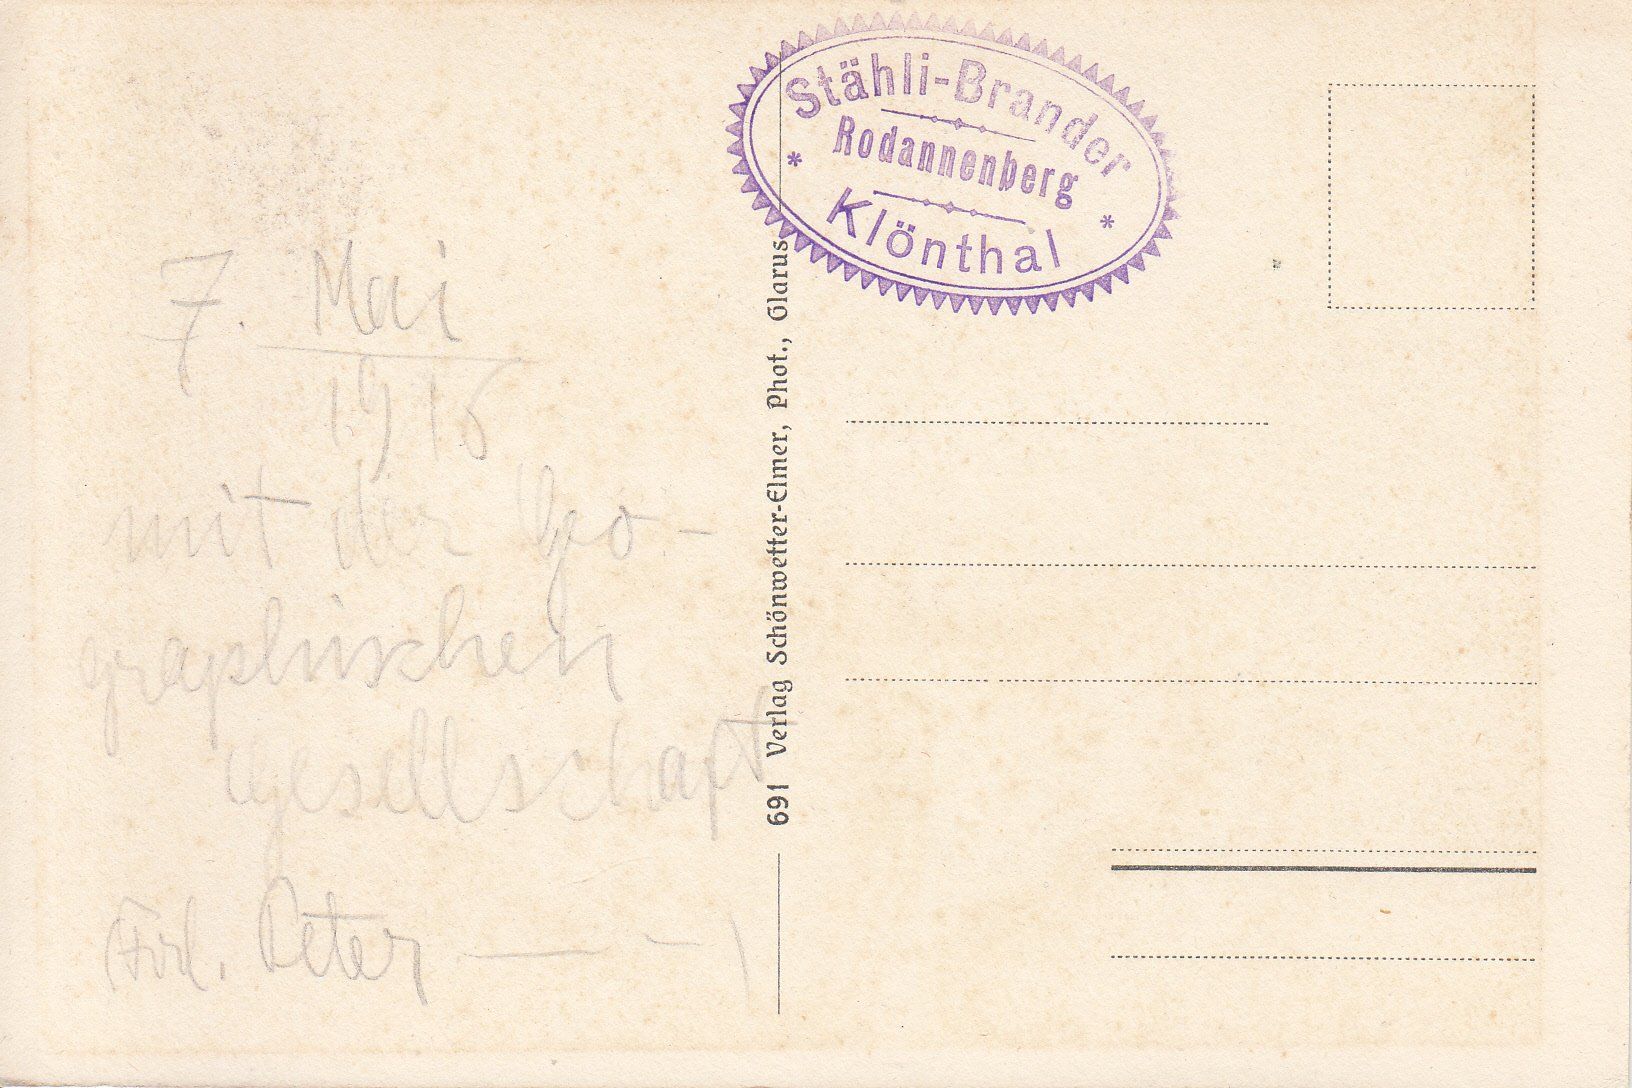 7. Mai
1916
mit der Geo-
graphischen
Gesellschaft
Peter — —)
691 Verlag Schönwetter-Elmer, Phot., Glarus
Stähli-Brander
Rodannenberg
* Klönthal *